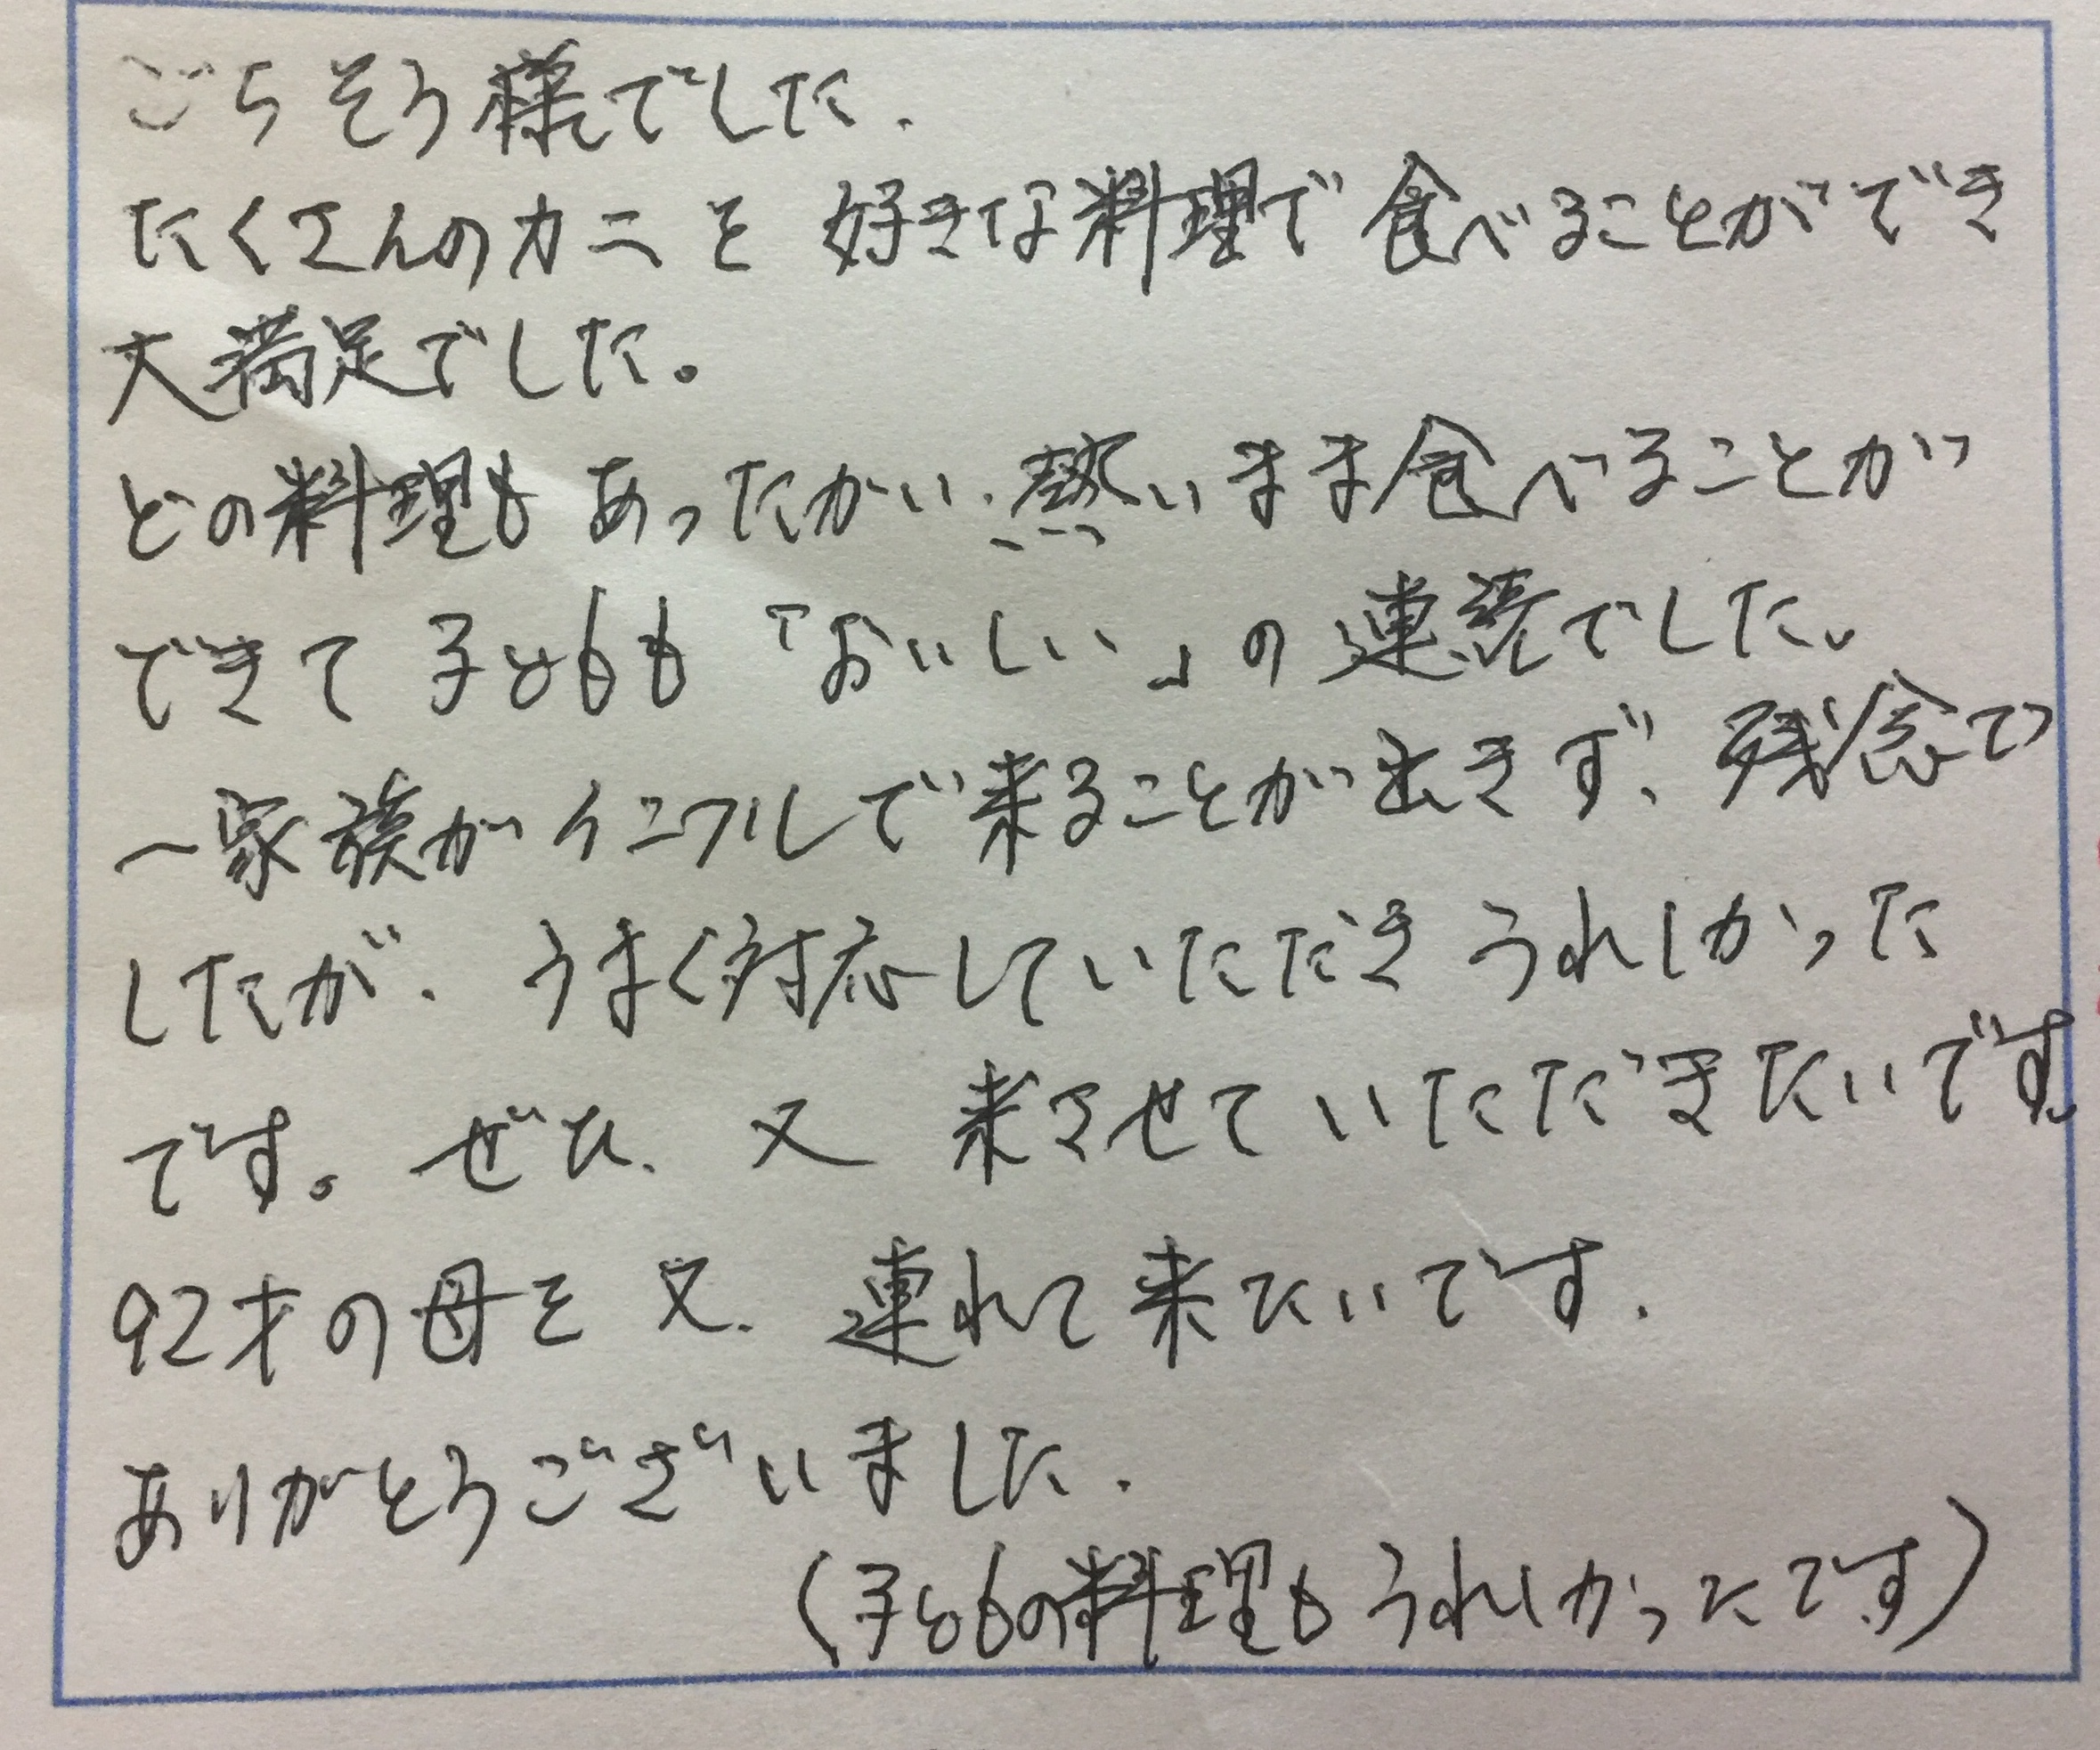 ごちそう様でした.
たくさんのカニを 好きな料理で 食べることができ
大満足でした。
どの料理も あったかい、熱いまま食べることが
できて 子どもも 「おいしい」の連続でした。
一家族がインフルで来ることが出きず、残念で
したが、うまく対応していただき うれしかった
です。ぜひ、又 来させていただきたいです。
92才の母を又、連れて来たいです.
ありがとうございました.
(子どもの料理もうれしかったです)